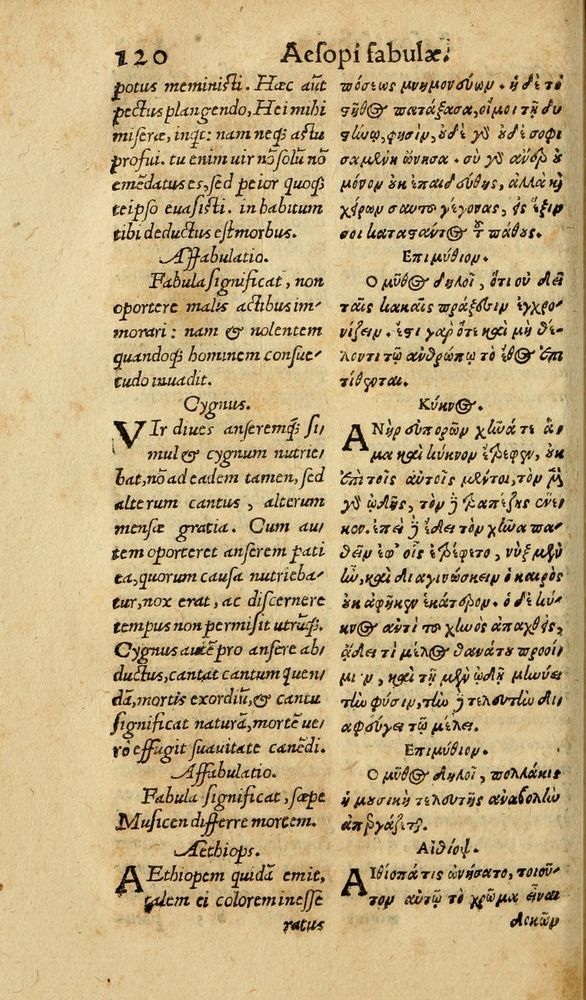 120 Aesopi fabulæ.
potus meministi. Hæc aūt
pectus plangendo, Hei mihi
miseræ, inqt: nam neqꝫ astu
profui. tu enim uir nō solū nō
emēdatus es, sed peior quoqꝫ
teipso euasisti. in habitum
tibi deductus est morbus.
Affabulatio.
Fabula significat, non
oportere malis actibus im-
morari: nam & nolentem
quandoqꝫ hominem consue-
tudo inuadit.
Cygnus.
VIr diues anseremqꝫ si
mul & cygnum nutrie-
bat, nō ad eadem tamen, sed
alterum cantus, alterum
mensæ gratia. Cum au-
tem oporteret anserem pati
ea, quorum causa nutrieba-
tur, nox erat, ac discernere
tempus non permisit utrūqꝫ.
Cygnus autē pro ansere ab
ductus, cantat cantum quen
dā, mortis exordiū, & cantu
significat naturā, mortē ue-
rò effugit suauitate canēdi.
Affabulatio.
Fabula significat, sæpe
Musicen differre mortem.
Aethiops.
AEthiopem quidā emit,
talem ei colorem inesse
ratus
πόσεως μνημονεύων. ἡ δὲ τὸ
στῆθος πατάξασα, οἴμοι τῇ δυ
στήνῳ, φησὶν, οὐδὲ γὰρ οὐδὲ σοφι
σαμένη ὤνησα. σὺ γὰρ ἄνερ οὐ
μόνον οὐκ ἐπαιδεύθης, ἀλλὰ καὶ
χείρων σαυτοῦ γέγονας, εἰς ἕξιν
σοι καταστάντος τοῦ πάθους.
Ἐπιμύθιον.
Ὁ μῦθος δηλοῖ, ὅτι οὐ δεῖ
ταῖς κακαῖς πράξεσιν ἐγχρο-
νίζειν. ἔστι γὰρ ὅτε καὶ μὴ θέ-
λοντι τῷ ἀνθρώπῳ τὸ ἔθος ἐπι
τίθεται.
Κύκνος.
ΑΝὴρ εὐπορῶν χῆνά τε ἅ-
μα καὶ κύκνον ἔτρεφεν, οὐκ
ἐπὶ τοῖς αὐτοῖς μέντοι, τὸν μὲν
γὰρ ᾠδῆς, τὸν δὲ τραπέζης ἕνε-
κεν. ἐπεὶ δὲ ἔδει τὸν χῆνα πα-
θεῖν ἐφ' οἷς ἐτρέφετο, νὺξ μὲν
ἦν, καὶ διαγινώσκειν ὁ καιρὸς
οὐκ ἀφῆκεν ἑκάτερον. ὁ δὲ κύ-
κνος ἀντὶ τοῦ χηνὸς ἀπαχθεὶς,
ᾄδει τι μέλος θανάτου προοί-
μιον, καὶ τῇ μὲν ᾠδῇ μηνύει
τὴν φύσιν, τὴν δὲ τελευτὴν δια
φεύγει τῷ μέλει.
Ἐπιμύθιον.
Ὁ μῦθος δηλοῖ, πολλάκις
ἡ μουσικὴ τελευτῆς ἀναβολὴν
ἀπεργάζεται.
Αἰθίοψ.
ΑΙθίοπά τις ὠνήσατο, τοιοῦ-
τον αὐτῷ τὸ χρῶμα εἶναι
δοκῶν